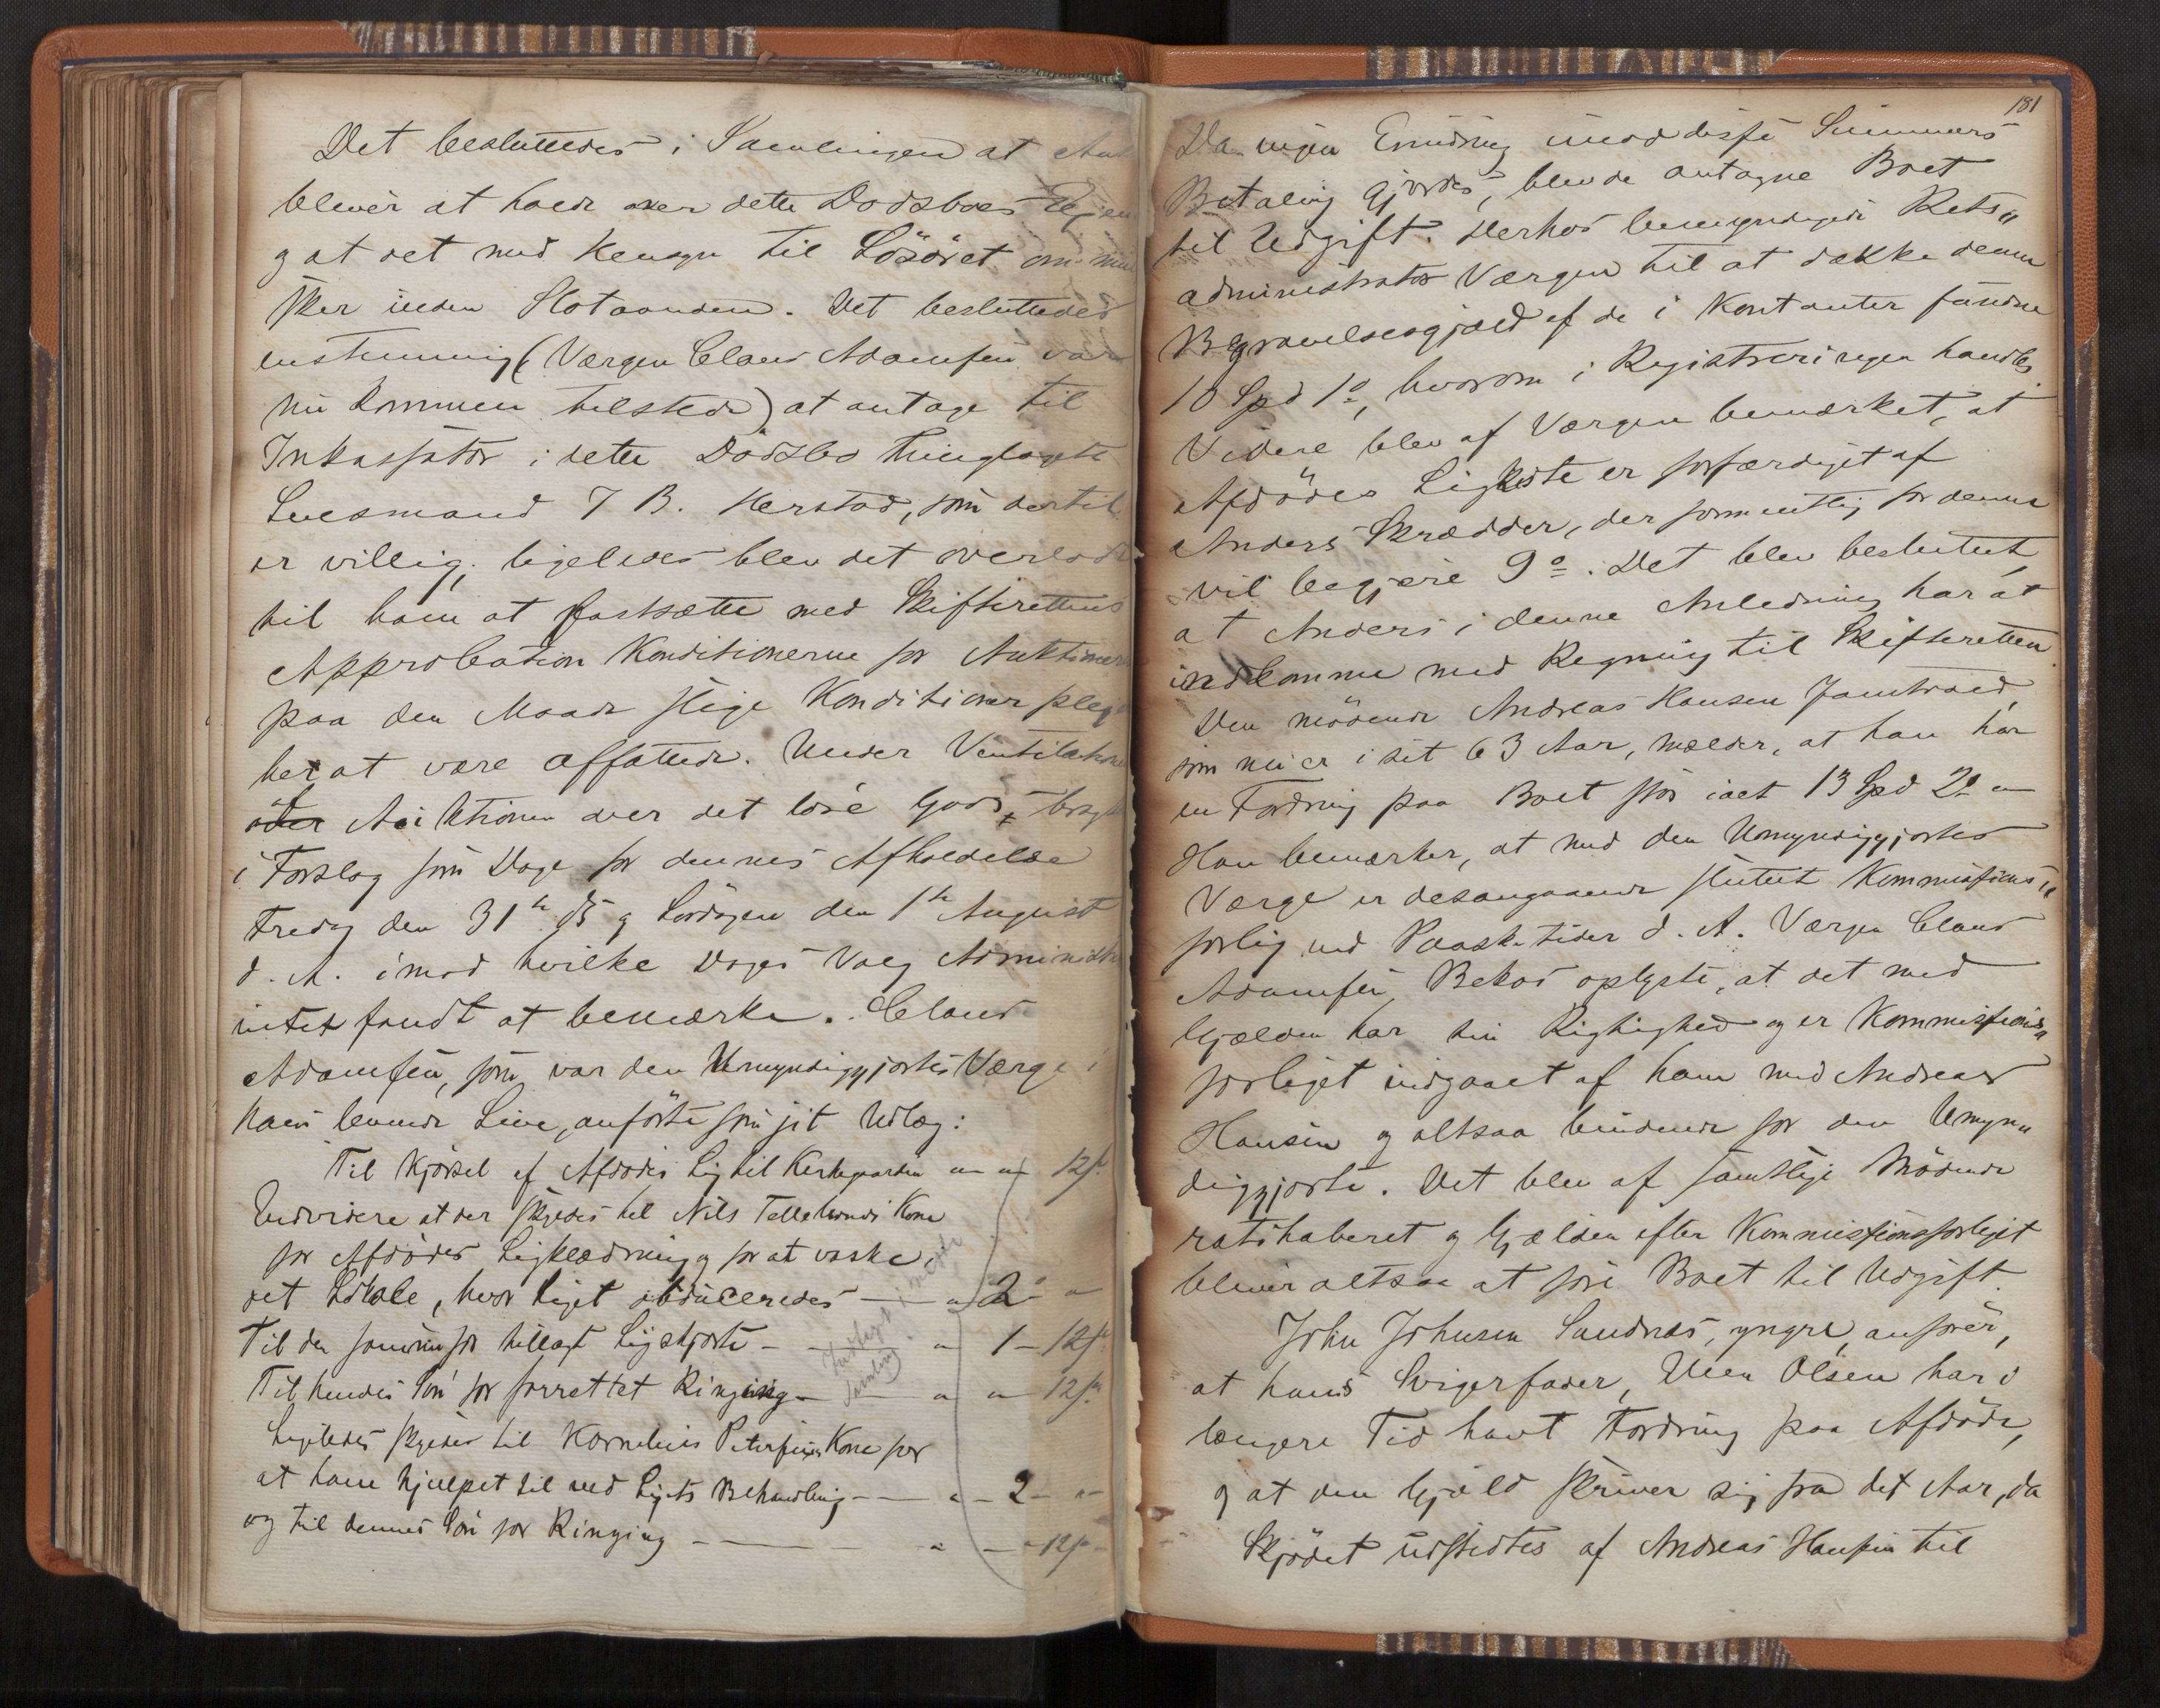 Det besluttedes i Samlingen at
bliver at holde over dette Dødsboes
g at det med Hensyn til Løsøret
sker inden Slotaanden. Det besluttedes
enstemmig (Værgen Claus Adamsen var
nu kommen tilstede) at antage til
Inkassator i dette Dødsbo
Lensmand J B. Herstad, som dertil
er villig, ligeledes blev det overladt
til ham at fastsætte med Skifterettens
Approbation Konditionerne for
paa den Maade slige Konditioner
her at være affattede. Under
Auktionen over det løse Gods,
i Forslag som Dage for dennes Afholdelse
Fredag den 31te ds g Lørdagen den 1te August
d. A. imod hvilke Dages Valg
intet fandt at bemærke. Claus
Adamsen, som var den Umyndiggjortes Værge i
hans levende Live, anførte som sit Udlæg:
Til Kjørsel af Afdødes Lig til Kirkegaarden „ „ 12 s.
Endvidere at der skyldes til Nils Kone
for Afdødes Ligklædning g for at vaske
det Lokale, hvor Liget obduceredes — „ 2 „
Til den samme for tillagt Ligskjorte — „ 1 - 12 s.
Til hendes Søn for forrettet Ringing — „ „ 12 s.
Ligeledes skyldes til Kornelius Petersens Kone for
at have hjulpet til ved Ligets Behandling — „ - 2 - „
og til dennes Søn for Ringing — „ — 12 s.
181
Da ingen Erindring imod disse Summers
Betaling gjordes, bleve de antagne Boet
til Udgift. Derhos bemyndigede Rets„
administrator Værgen til at dække denne
Begravelsesgjæld af de i Kontanter fundne
10 Spd 1 o, hvorom i Registreringen handles.
Videre blev af Værgen bemærket, at
Afdødes Ligkiste er forfærdiget af
Anders Skrædder, der formentlig for denne
vil begjære 9 o. Det blev besluttet,
at Anders i denne Anledning har at
indkomme med Regning til Skifteretten.
Den mødende Andreas Hansen
som nu er i sit 63 Aar, melder, at han har
en Fordring paa Boet stor ialt 13 Spd 2 o „
Han bemærker, at med den Umyndiggjortes
Værge er desangaaende sluttet Kommissions„
forlig ved Paasketider d. A. Værgen Claus
Adamsen Bekos oplyste, at det med
Gjælden har sin Rigtighed og er Kommissions„
forliget indgaaet af ham med Andreas
Hansen g altsaa bindende for den Umyn„
diggjorte. Det blev af samtlige Mødende
ratihaberet g Gjælden efter Kommissionsforliget
bliver altsaa at føre Boet til Udgift.
John Johnsen Sandnæs, yngre, anfører,
at hans Svigerfader, Olsen har i
længere Tid havt Fordring paa Afdøde,
g at den Gjæld skriver sig fra det Aar, da
Skjødet udstedtes af Andreas Hansen til